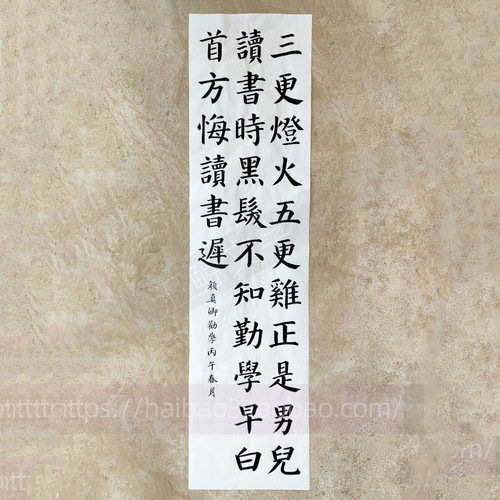 三更燈火五更雞正是男兒
讀書時黑髮不知勤學早白
首方悔讀書遲
顏真卿勸學丙午春月